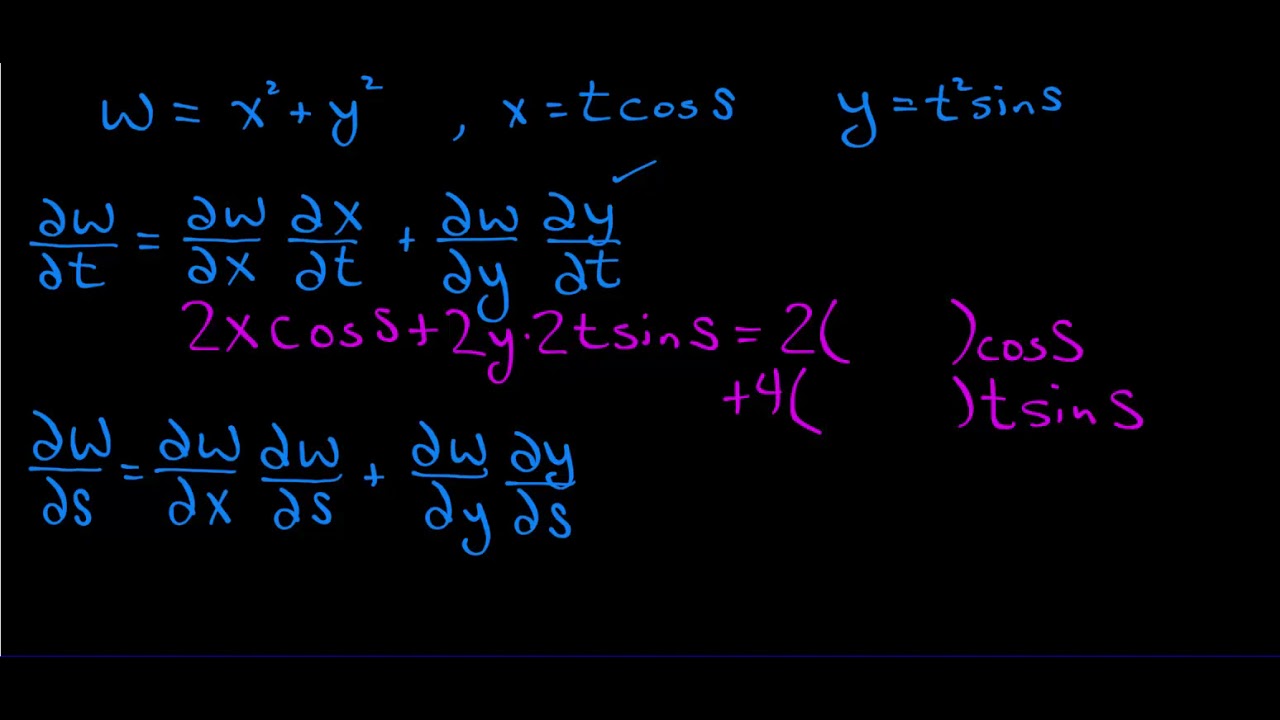 w = x² + y² , x = t cos s y = t² sin s
∂w/∂t = ∂w/∂x ∂x/∂t + ∂w/∂y ∂y/∂t ✓
2x cos s + 2y · 2t sin s = 2( ) cos s
+ 4( ) t sin s
∂w/∂s = ∂w/∂x ∂w/∂s + ∂w/∂y ∂y/∂s